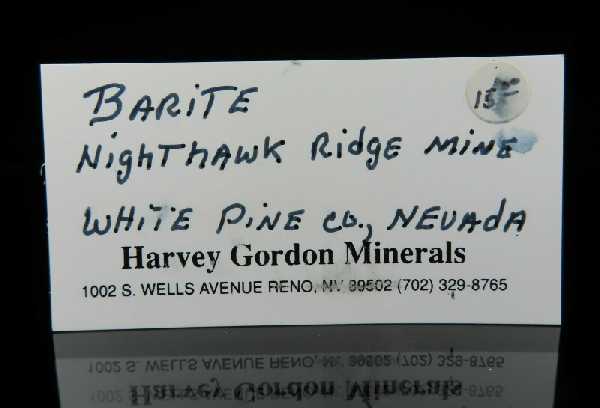 BARiTE
15
NighTHAWK RidgE MiNE
WHiTE PiNE CO., NEVAdA
Harvey Gordon Minerals
1002 S. WELLS AVENUE RENO, NV 89502 (702) 329-8765